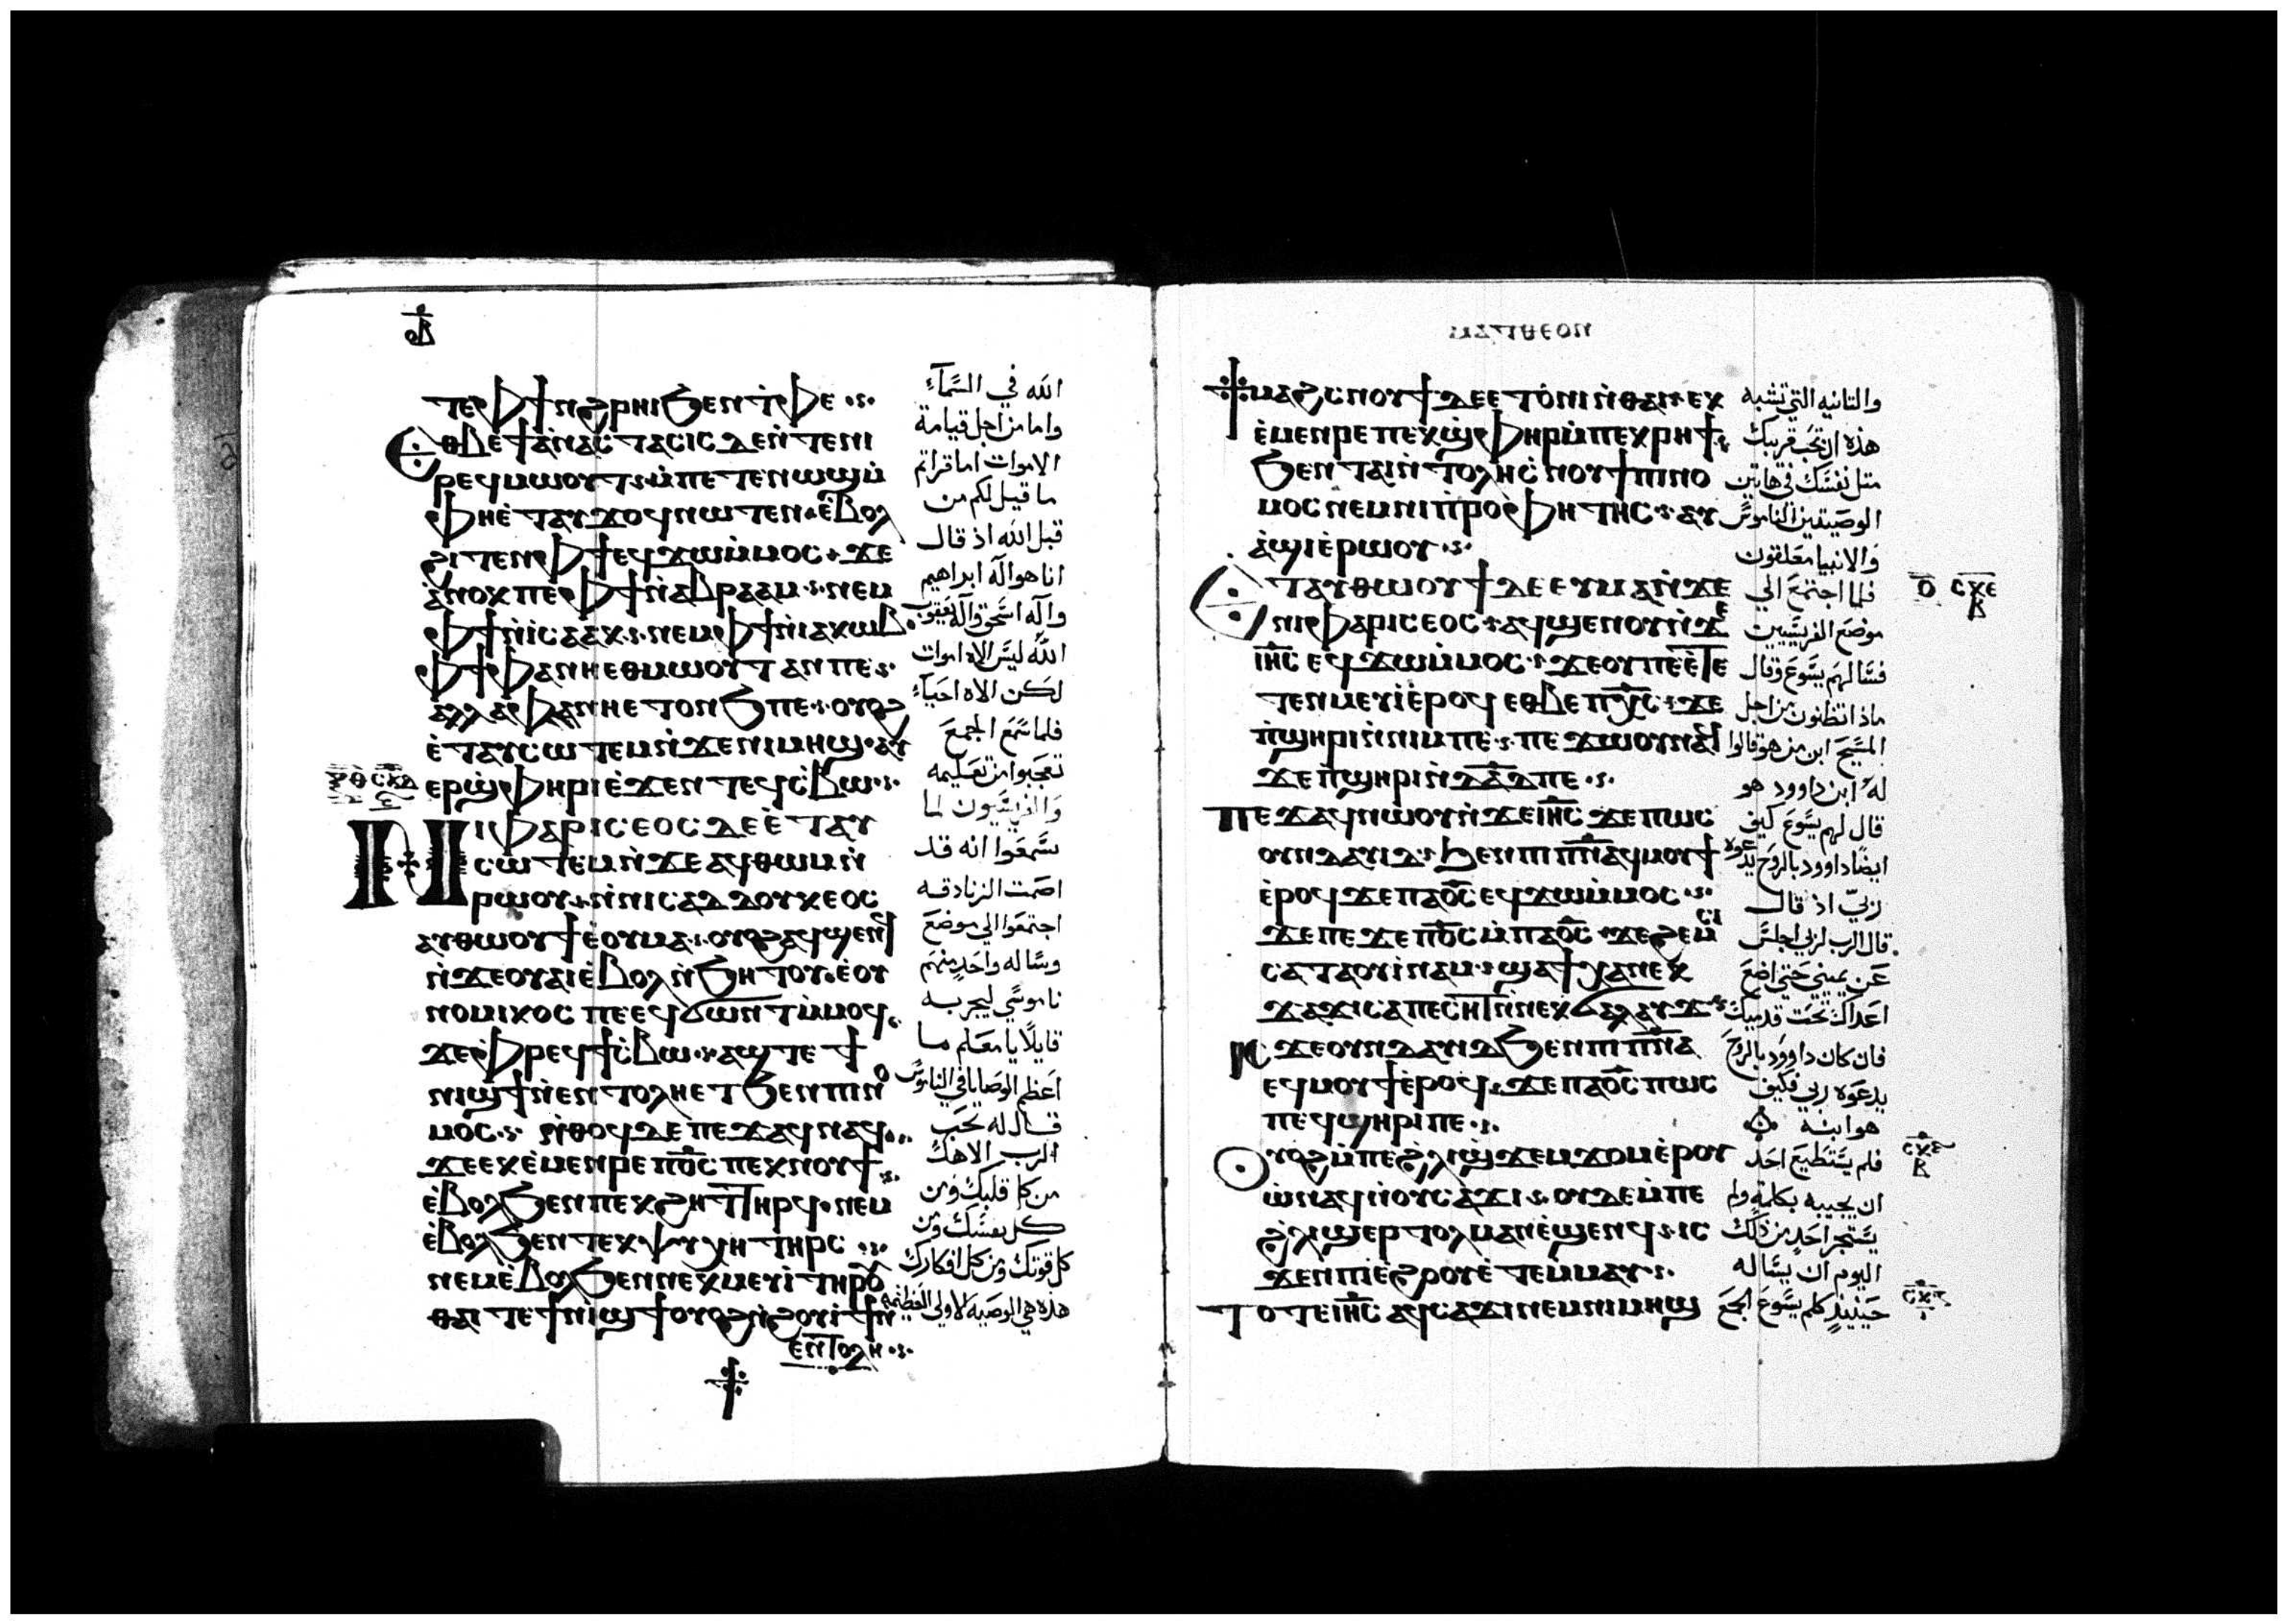 ϥⲃ
ⲧⲉⲫϯ ⲛϩⲣⲏⲓ ϧⲉⲛ ⲧⲫⲉ
ⲉⲑⲃⲉ ϯⲁⲛⲁⲥⲧⲁⲥⲓⲥ ⲇⲉ ⲛⲧⲉ ⲛⲓ
ⲣⲉϥⲙⲱⲟⲩⲧ ⲙⲡⲉⲧⲉⲛⲱϣ ⲙ
ⲫⲏ ⲉⲧⲁⲩϫⲟϥ ⲛⲱⲧⲉⲛ ⲉⲃⲟⲗ
ϩⲓⲧⲉⲛ ⲫϯ ⲉϥϫⲱ ⲙⲙⲟⲥ ϫⲉ
ⲁⲛⲟⲕ ⲡⲉ ⲫϯ ⲛⲁⲃⲣⲁⲁⲙ ⲛⲉⲙ
ⲫϯ ⲛⲓⲥⲁⲁⲕ ⲛⲉⲙ ⲫϯ ⲛⲓⲁⲕⲱⲃ
ⲫϯ ⲫⲁ ⲛⲏⲉⲑⲙⲱⲟⲩⲧ ⲁⲛ ⲡⲉ
ⲁⲗⲗⲁ ⲫⲁ ⲛⲏⲉⲧⲟⲛϧ ⲡⲉ ⲟⲩⲟϩ
ⲉⲧⲁⲩⲥⲱⲧⲉⲙ ⲛϫⲉ ⲛⲓⲙⲏϣ ⲁⲩ
ⲉⲣϣⲫⲏⲣⲓ ⲉϫⲉⲛ ⲧⲉϥⲥⲃⲱ
ⲛⲓⲫⲁⲣⲓⲥⲉⲟⲥ ⲇⲉ ⲉⲧⲁⲩ
ⲥⲱⲧⲉⲙ ⲛϫⲉ ⲁϥⲑⲱⲙ ⲛ
ⲣⲱⲟⲩ ⲛⲛⲓⲥⲁⲇⲇⲟⲩⲕⲉⲟⲥ
ⲁⲩⲑⲱⲟⲩϯ ⲉⲟⲩⲙⲁ ⲟⲩⲟϩ ⲁϥϣⲉⲛϥ
ⲛϫⲉ ⲟⲩⲁⲓ ⲉⲃⲟⲗ ⲛϧⲏⲧⲟⲩ ⲉⲟⲩ
ⲛⲟⲙⲓⲕⲟⲥ ⲡⲉ ⲉϥϭⲱⲛⲧ ⲙⲙⲟϥ
ϫⲉ ⲫⲣⲉϥϯⲥⲃⲱ ⲁϣ ⲧⲉ ϯ
ⲛⲓϣϯ ⲛⲉⲛⲧⲟⲗⲏ ⲉⲧϧⲉⲛ ⲡⲓⲛⲟ
ⲙⲟⲥ ⲛⲑⲟϥ ⲇⲉ ⲡⲉϫⲁϥ ⲛⲁϥ
ϫⲉ ⲉⲕⲉⲙⲉⲛⲣⲉ ⲡ︦ⲟ︦ⲥ︦ ⲡⲉⲕⲛⲟⲩϯ
ⲉⲃⲟⲗ ϧⲉⲛ ⲡⲉⲕϩⲏⲧ ⲧⲏⲣϥ ⲛⲉⲙ
ⲉⲃⲟⲗ ϧⲉⲛ ⲧⲉⲕⲯⲩⲭⲏ ⲧⲏⲣⲥ
ⲛⲉⲙ ⲉⲃⲟⲗ ϧⲉⲛ ⲛⲉⲕⲙⲉⲩⲓ ⲧⲏⲣⲟⲩ
ⲑⲁⲓ ⲧⲉ ϯⲛⲓϣϯ ⲟⲩⲟϩ ⲛϩⲟⲩⲓϯ ⲛ
ⲉⲛⲧⲟⲗⲏ
الله في السماء
واما من اجل قيامة
الاموات اما قراتم
ما قيل لكم من
قبل الله اذ قال
انا هو اله ابراهيم
واله اسحق واله يعقوب
الله ليس الاه اموات
لكن الاه احياء
فلما سمع الجمع
تعجبوا من تعليمه
والفريسيون لما
سمعوا انه قد
اصمت الزنادقه
اجتمعوا الي موضع
وساله واحد منهم
ناموسي ليجربه
قايلا يا معلم ما
اعظم الوصايا في الناموس
قال له تحب
الرب الاهك
من كل قلبك ومن
كل نفسك ومن
كل قوتك ومن كل افكارك
هذه هي الوصيه الاولي العظيمه
ⲙⲁⲧⲑⲉⲟⲛ
ϯⲙⲁϩⲥⲛⲟⲩϯ ⲇⲉ ⲉⲧⲟⲛⲓ ⲛⲑⲁⲓ ⲉⲕ
ⲉⲙⲉⲛⲣⲉ ⲡⲉⲕϣⲫⲏⲣ ⲙⲡⲉⲕⲣⲏϯ
ϧⲉⲛ ⲧⲁⲓⲛⲧⲟⲗⲏ ⲥⲛⲟⲩϯ ⲡⲓⲛⲟ
ⲙⲟⲥ ⲛⲉⲙ ⲛⲓⲡⲣⲟⲫⲏⲧⲏⲥ ⲁⲩ
ⲁϣⲓ ⲉⲣⲱⲟⲩ
ⲉⲧⲁⲩⲑⲱⲟⲩϯ ⲇⲉ ⲉⲩⲙⲁ ⲛϫⲉ
ⲛⲓⲫⲁⲣⲓⲥⲉⲟⲥ ⲁϥϣⲉⲛⲟⲩ ⲛϫⲉ
ⲓ︦ⲏ︦ⲥ︦ ⲉϥϫⲱ ⲙⲙⲟⲥ ϫⲉ ⲟⲩ ⲡⲉ ⲉⲧⲉ
ⲧⲉⲛⲙⲉⲩⲓ ⲉⲣⲟϥ ⲉⲑⲃⲉ ⲡ︦ⲭ︦ⲥ︦ ϫⲉ
ⲡϣⲏⲣⲓ ⲛⲛⲓⲙ ⲡⲉ ⲡⲉϫⲱⲟⲩ ⲛⲁϥ
ϫⲉ ⲡϣⲏⲣⲓ ⲛⲇ︦ⲁ︦ⲇ︦ ⲡⲉ
ⲡⲉϫⲁϥ ⲛⲱⲟⲩ ⲛϫⲉ ⲓ︦ⲏ︦ⲥ︦ ϫⲉ ⲡⲱⲥ
ⲟⲩⲛ ⲇⲁⲩⲓⲇ ϧⲉⲛ ⲡⲓⲡ︦ⲛ︦ⲁ︦ ⲁϥⲙⲟⲩϯ
ⲉⲣⲟϥ ϫⲉ ⲡⲁⲟ︦ⲥ︦ ⲉϥϫⲱ ⲙⲙⲟⲥ
ϫⲉ ⲡⲉϫⲉ ⲡ︦ⲟ︦ⲥ︦ ⲙⲡⲁⲟ︦ⲥ︦ ϫⲉ ϩⲉⲙⲥⲓ
ⲥⲁⲧⲁⲟⲩⲓⲛⲁⲙ ϣⲁϯⲭⲁ ⲛⲉⲕ
ϫⲁϫⲓ ⲥⲁⲡⲉⲥⲏⲧ ⲛⲛⲉⲕϭⲁⲗⲁⲩϫ
ⲓⲥϫⲉ ⲟⲩⲛ ⲇⲁⲩⲓⲇ ϧⲉⲛ ⲡⲓⲡ︦ⲛ︦ⲁ︦
ⲉϥⲙⲟⲩϯ ⲉⲣⲟϥ ϫⲉ ⲡⲁⲟ︦ⲥ︦ ⲡⲱⲥ
ⲡⲉϥϣⲏⲣⲓ ⲡⲉ
ⲟⲩⲟϩ ⲙⲡⲉ ϩⲗⲓ ϣϫⲉⲙϫⲟⲙ ⲉⲣⲟⲩ
ⲱ ⲛⲁϥ ⲛⲟⲩⲥⲁϫⲓ ⲟⲩⲇⲉ ⲙⲡⲉ
ϩⲗⲓ ϣⲉⲣⲧⲟⲗⲙⲁⲛ ⲉϣⲉⲛϥ ⲓⲥ
ϫⲉⲛ ⲡⲓⲉϩⲟⲟⲩ ⲉⲧⲉⲙⲙⲁⲩ
ⲧⲟⲧⲉ ⲓ︦ⲏ︦ⲥ︦ ⲁϥⲥⲁϫⲓ ⲛⲉⲙ ⲛⲓⲙⲏϣ
والثانيه التي تشبه
هذه ان تحب قريبك
مثل نفسك في هاتين
الوصيتين الناموس
والانبيا معلقون
فلما اجتمع الي
موضع الفريسيين
فسالهم يسوع وقال
ماذا تظنون من اجل
المسيح ابن من هو قالوا
له ابن داوود هو
قال لهم يسوع كيف
ايضا داوود بالروح يدعوه
ربي اذ قال
قال الرب لربي اجلس
عن يميني حتي اضع
اعداك تحت قدميك
فان كان داوود بالروح
يدعوه ربي فكيف
هو ابنه
فلم يستطيع احد
ان يجيبه بكلمة ولم
يستجر احد من ذلك
اليوم ان يساله
حينيذ كلم يسوع الجمع